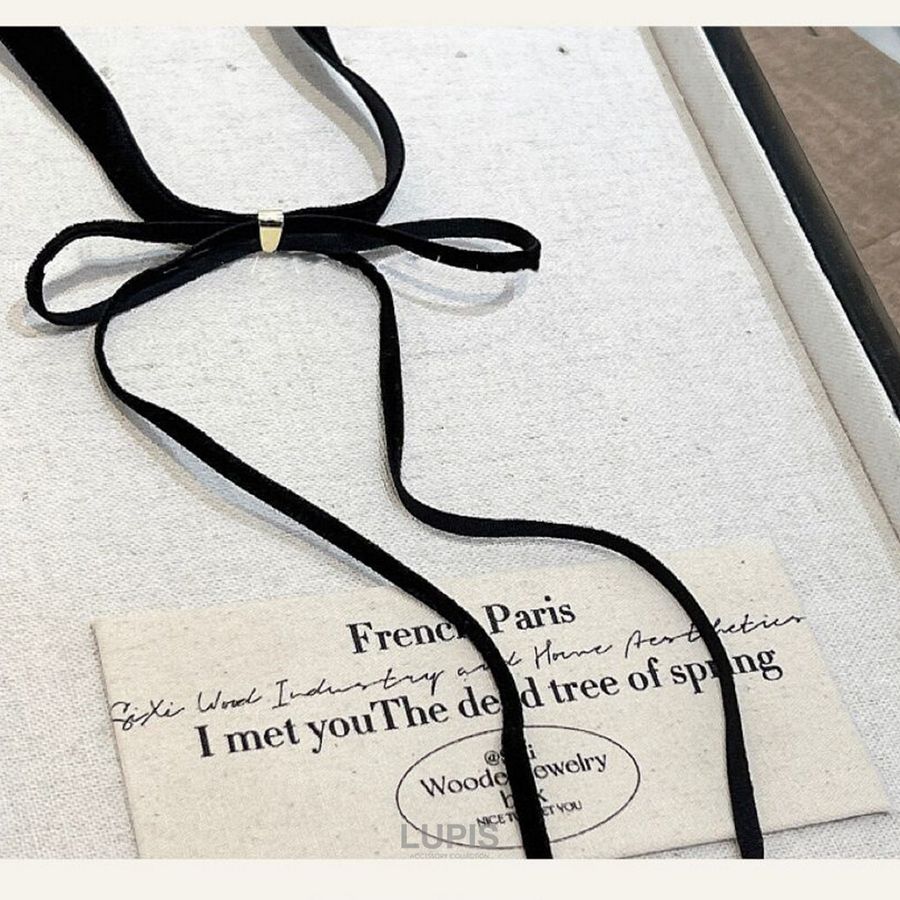 French Paris
SiXi Wood Industry and Home Aesthetics
I met youThe dead tree of spring
Wooden Jewelry
NICE TO MEET YOU
LUPIS
ACCESSORY COLLECTION